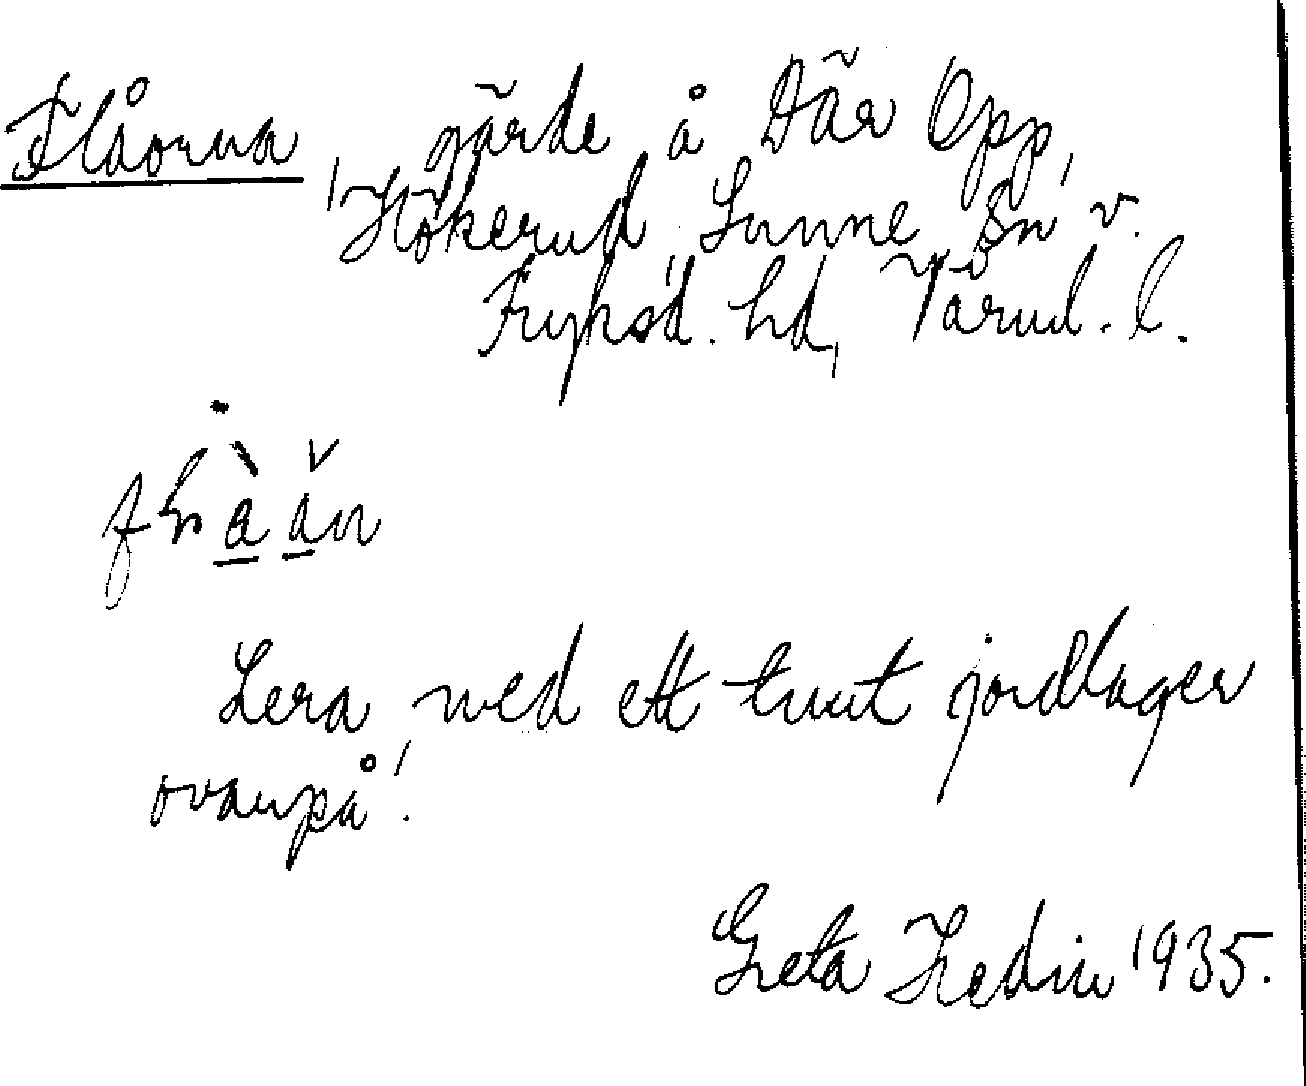 Flåorna, gärde å Där Opp,
Hökerud Sunne sn v.
Fryksd. hd, Värml. l.
Lera med ett tunt jordlager
ovanpå!
Greta Hedin 1935.